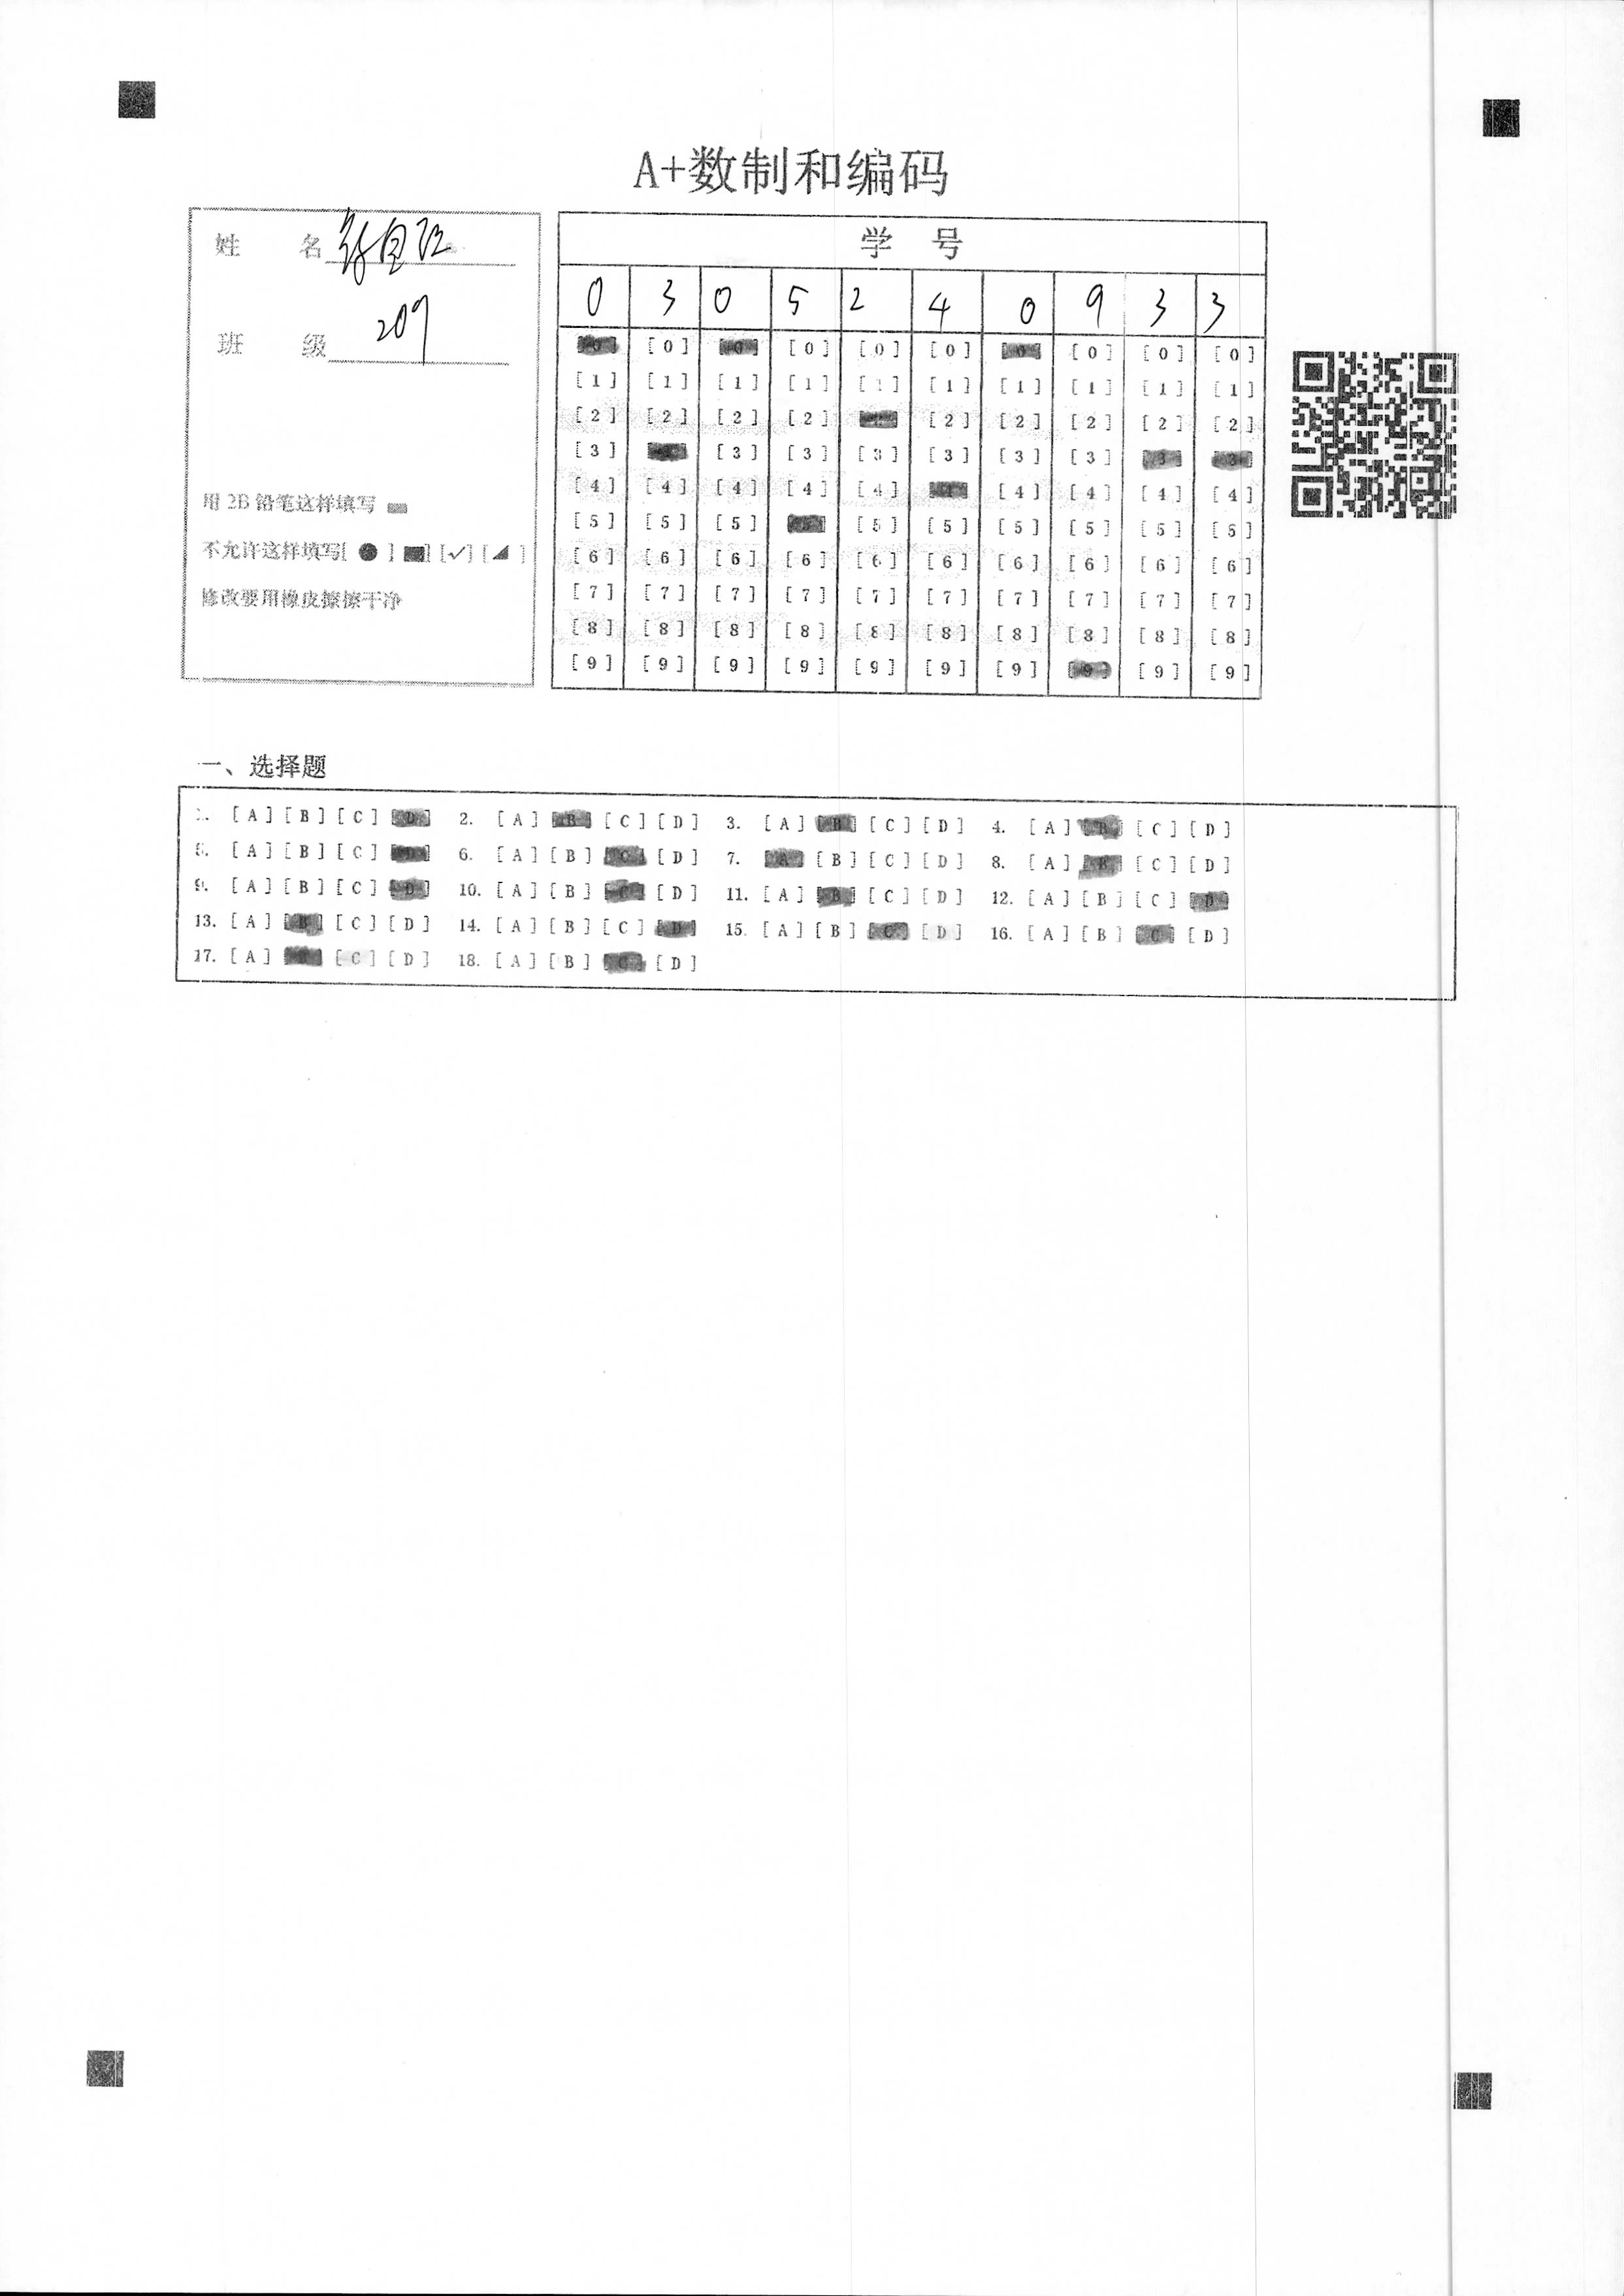 A+数制和编码
姓 名
班 级 209
用 2B 铅笔这样填写
不允许这样填写[ ● ] [■] [✓] [◢ ]
修改要用橡皮擦擦干净
学 号
0 3 0 5 2 4 0 9 3 3
[0] [0] [0] [0] [0] [0] [0] [0] [0] [0]
[1] [1] [1] [1] [1] [1] [1] [1] [1] [1]
[2] [2] [2] [2] [2] [2] [2] [2] [2]
[3] [3] [3] [3] [3] [3] [3] [3] [3]
[4] [4] [4] [4] [4] [4] [4] [4] [4]
[5] [5] [5] [5] [5] [5] [5] [5] [5]
[6] [6] [6] [6] [6] [6] [6] [6] [6] [6]
[7] [7] [7] [7] [7] [7] [7] [7] [7] [7]
[8] [8] [8] [8] [8] [8] [8] [8] [8] [8]
[9] [9] [9] [9] [9] [9] [9] [9] [9] [9]
一、选择题
1. [A] [B] [C] [D] 2. [A] [B] [C] [D] 3. [A] [B] [C] [D] 4. [A] [B] [C] [D]
5. [A] [B] [C] [D] 6. [A] [B] [C] [D] 7. [A] [B] [C] [D] 8. [A] [B] [C] [D]
9. [A] [B] [C] [D] 10. [A] [B] [C] [D] 11. [A] [B] [C] [D] 12. [A] [B] [C] [D]
13. [A] [B] [C] [D] 14. [A] [B] [C] [D] 15. [A] [B] [C] [D] 16. [A] [B] [C] [D]
17. [A] [B] [C] [D] 18. [A] [B] [C] [D]